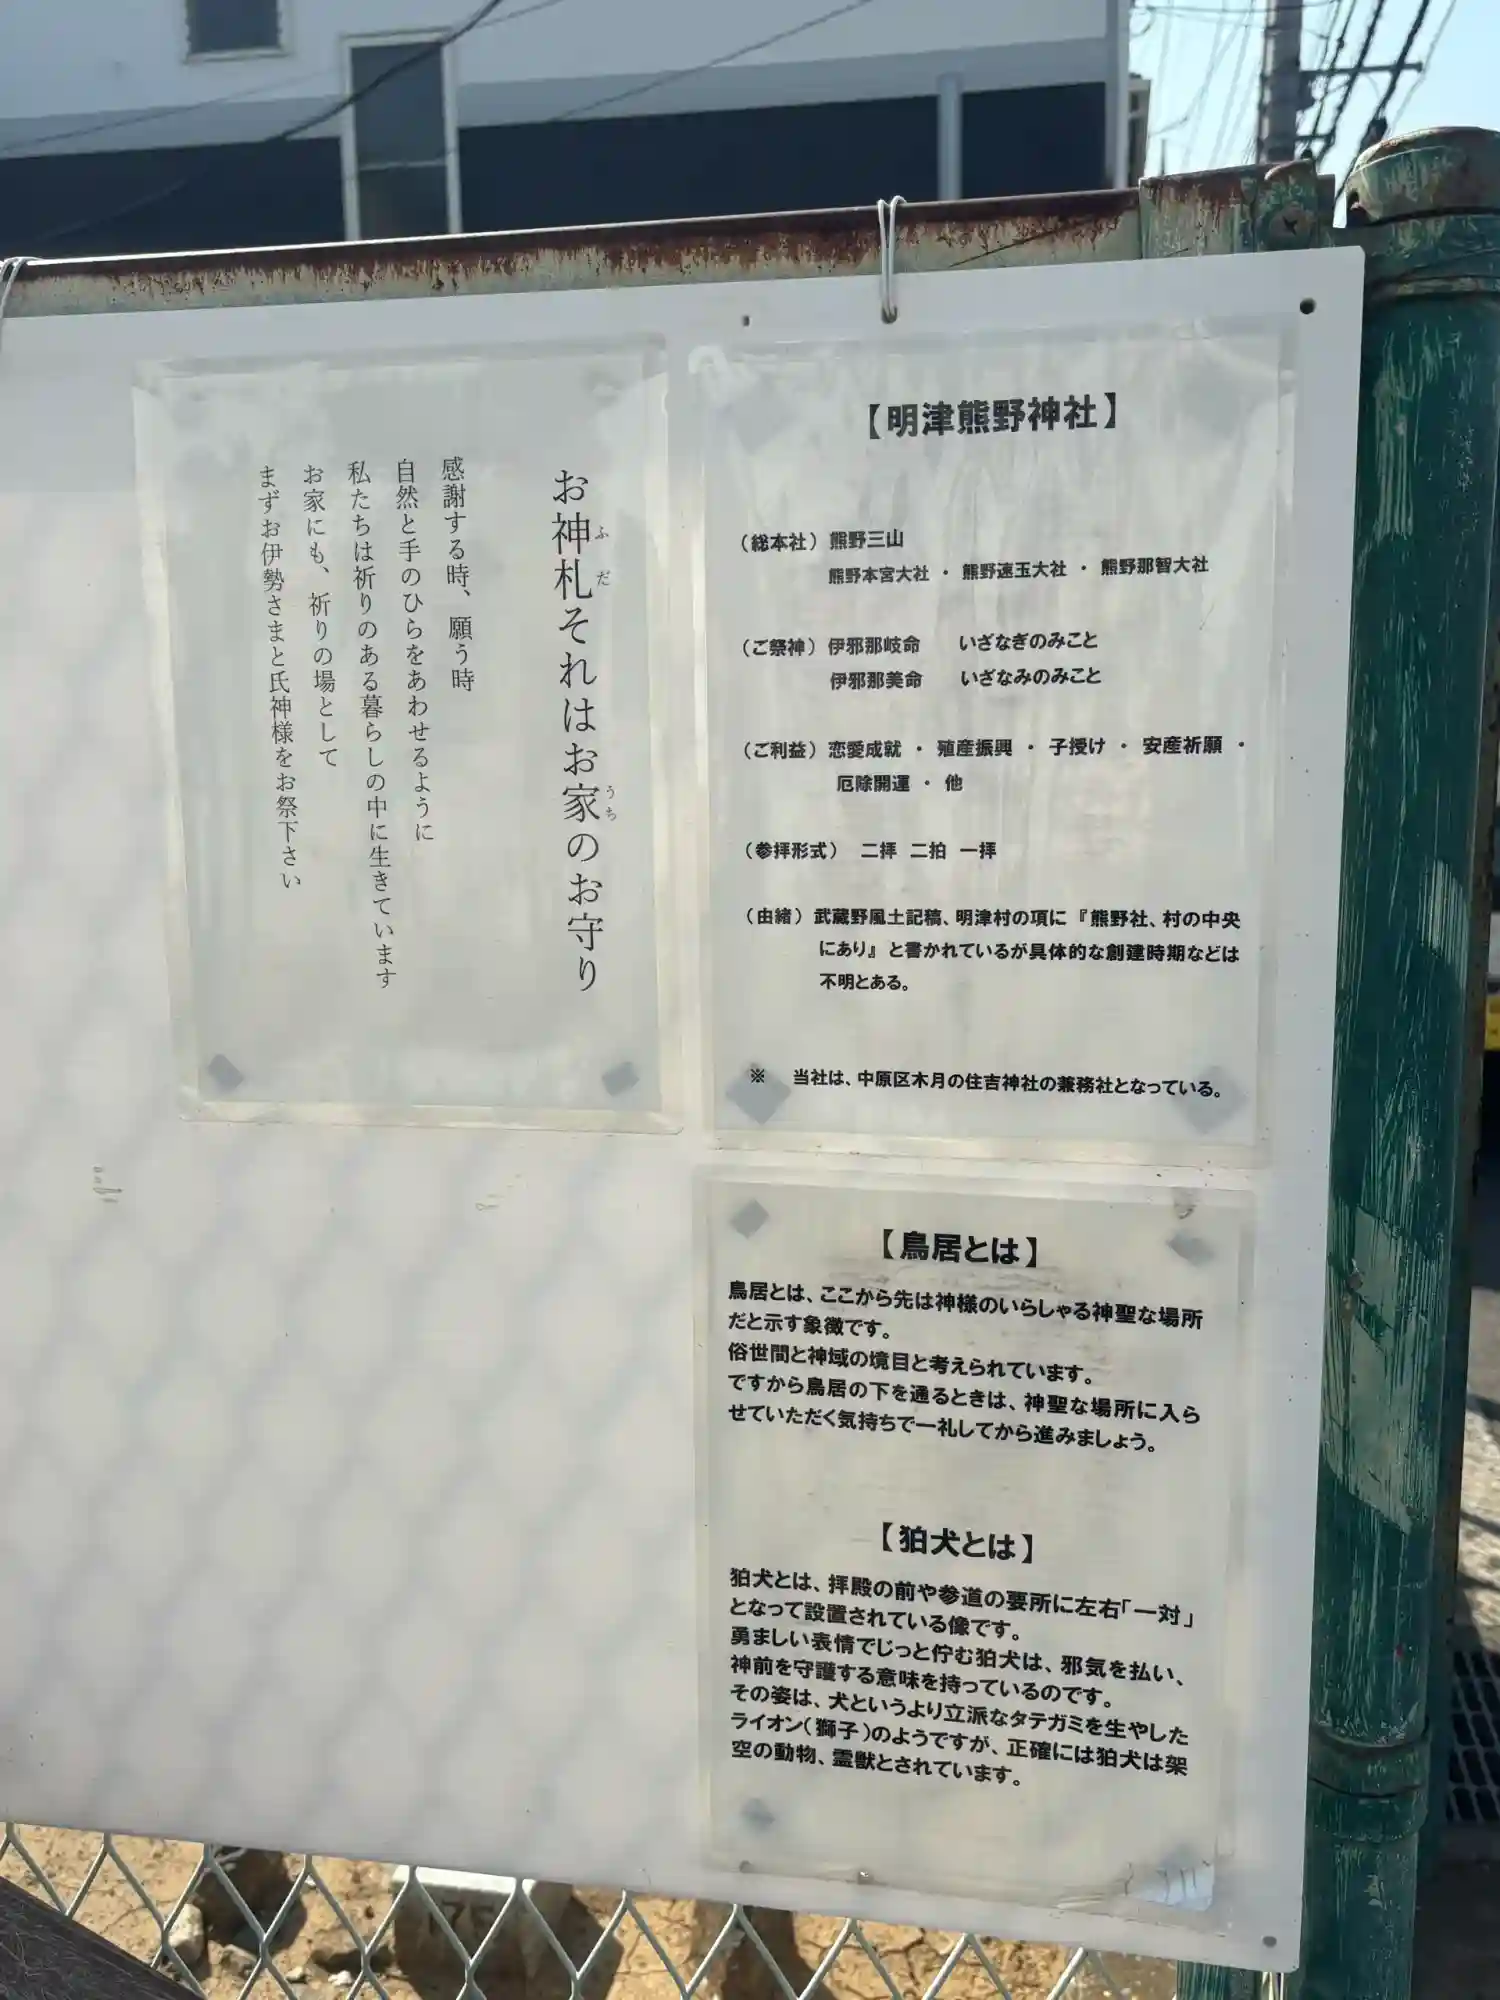 【明津熊野神社】
（総本社）熊野三山
熊野本宮大社 ・ 熊野速玉大社 ・ 熊野那智大社
（ご祭神）伊邪那岐命 いざなぎのみこと
伊邪那美命 いざなみのみこと
（ご利益）恋愛成就 ・ 殖産振興 ・ 子授け ・ 安産祈願 ・
厄除開運 ・ 他
（参拝形式） 二拝 二拍 一拝
（由緒）武蔵野風土記稿、明津村の項に『熊野社、村の中央
にあり』と書かれているが具体的な創建時期などは
不明とある。
※ 当社は、中原区木月の住吉神社の兼務社となっている。
お神札それはお家のお守り
ふだ
うち
感謝する時、願う時
自然と手のひらをあわせるように
私たちは祈りのある暮らしの中に生きています
お家にも、祈りの場として
まずお伊勢さまと氏神様をお祭下さい
【鳥居とは】
鳥居とは、ここから先は神様のいらしゃる神聖な場所
だと示す象徴です。
俗世間と神域の境目と考えられています。
ですから鳥居の下を通るときは、神聖な場所に入ら
せていただく気持ちで一礼してから進みましょう。
【狛犬とは】
狛犬とは、拝殿の前や参道の要所に左右「一対」
となって設置されている像です。
勇ましい表情でじっと佇む狛犬は、邪気を払い、
神前を守護する意味を持っているのです。
その姿は、犬というより立派なタテガミを生やした
ライオン(獅子)のようですが、正確には狛犬は架
空の動物、霊獣とされています。